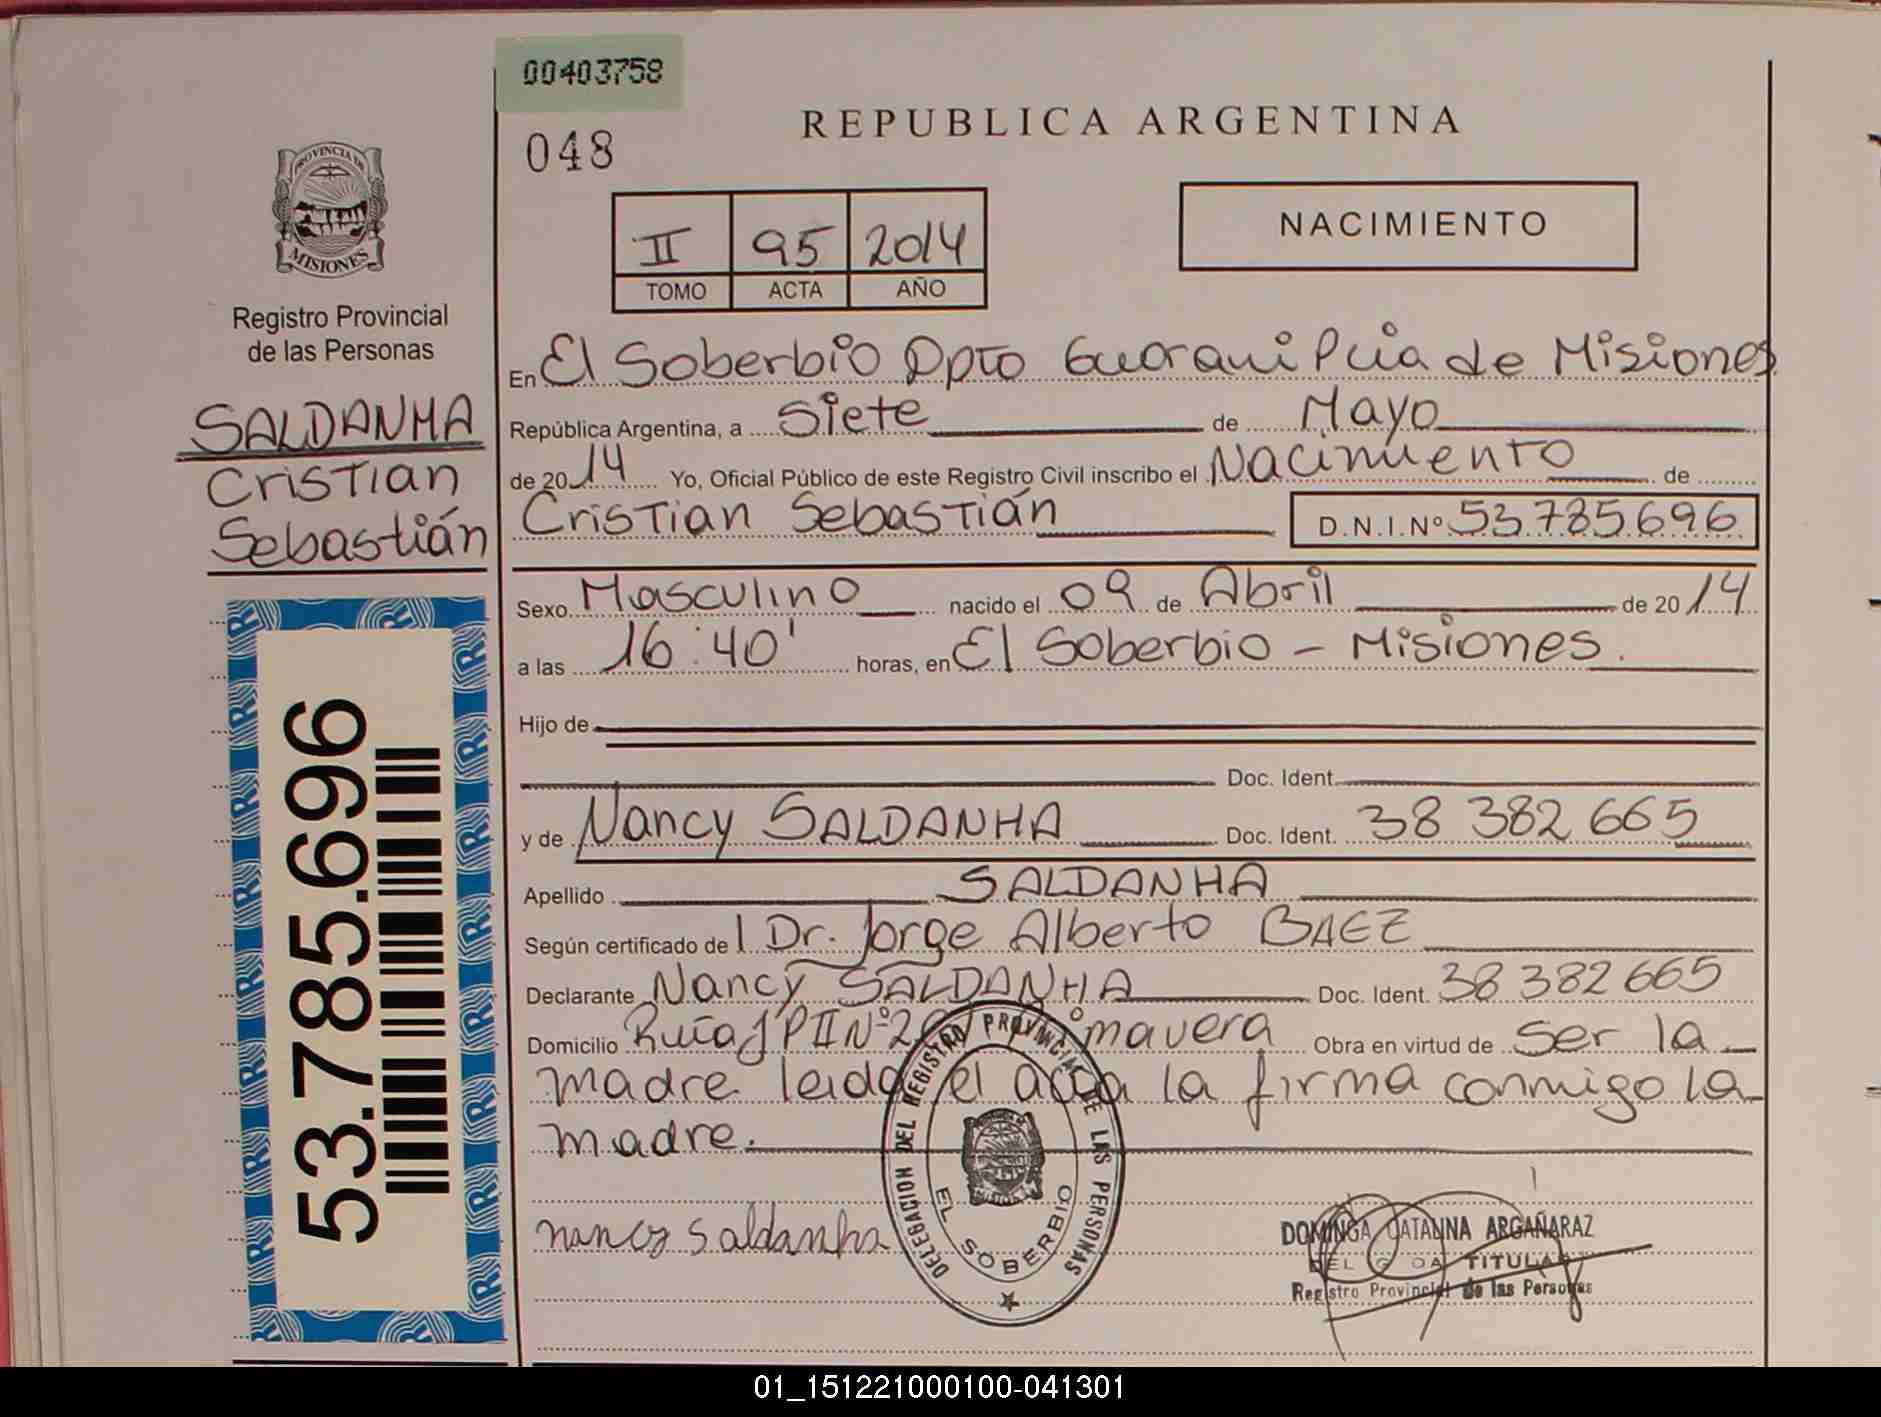 00403758
048
REPUBLICA ARGENTINA
PROVINCIA DE
MISIONES
Registro Provincial
de las Personas
II 95 2014
TOMO ACTA AÑO
NACIMIENTO
SALDANHA
Cristian
Sebastián
53.785.696
En El Soberbio Dpto Guarani Pcia de Misiones
República Argentina, a Siete de Mayo
de 2014 Yo, Oficial Público de este Registro Civil inscribo el Nacimiento de
Cristian Sebastián D.N.I.Nº 53.785.696
Sexo Masculino nacido el 09 de Abril de 2014
a las 16:40' horas, en El Soberbio - Misiones.
Hijo de
Doc. Ident.
y de Nancy SALDANHA Doc. Ident. 38 382 665
Apellido SALDANHA
Según certificado del Dr. Jorge Alberto BAEZ
Declarante Nancy SALDANHA Doc. Ident. 38 382 665
Domicilio Ruta J PII Nº 2 Obra en virtud de Ser la
madre leida el acta la firma conmigo la
madre.
nancy Saldanha
DELEGACION DEL REGISTRO PROVINCIAL DE LAS PERSONAS
EL SOBERBIO
DOMINGA CATALINA ARGAÑARAZ
DELEGADA TITULAR
Registro Provincial de las Personas
01_151221000100-041301